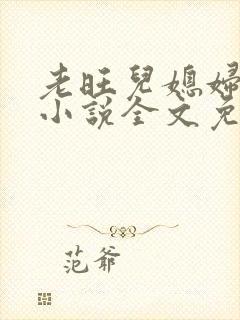 老旺兒媳婦
小說全文免
范爺